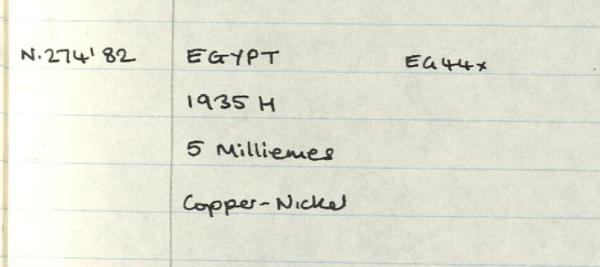 N.274'82 EGYPT EG44x
1935 H
5 Milliemes
Copper-Nickel